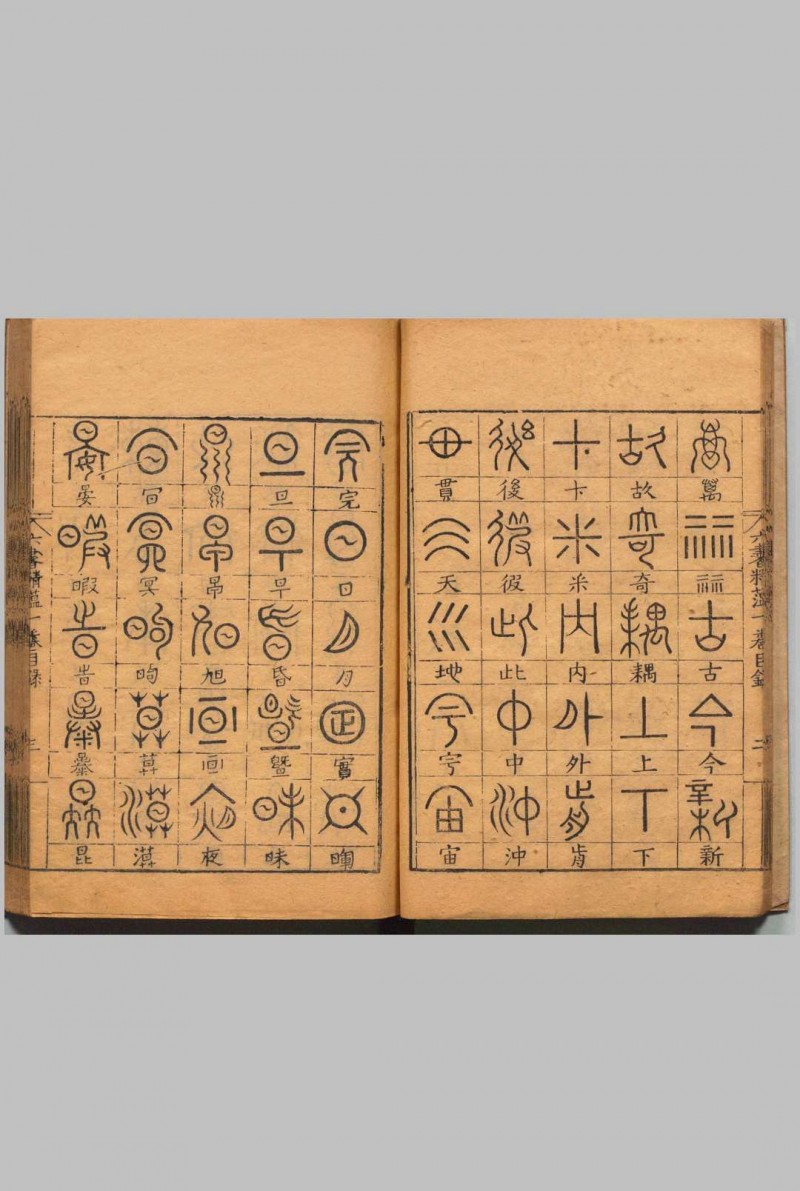 六書精蘊一卷目錄 二
萬 祘 古 今 新
故 奇 耦 上 下
卞 米 内 外 肯
後 此 中 沖
貫 天 地 宇 宙
完 日 月 實 暉
旦 早 昏 暨 昧
旭 亘 夜
冥 昫 漠
晏 暇 昔 暴 昆
六書精蘊一卷目錄 三